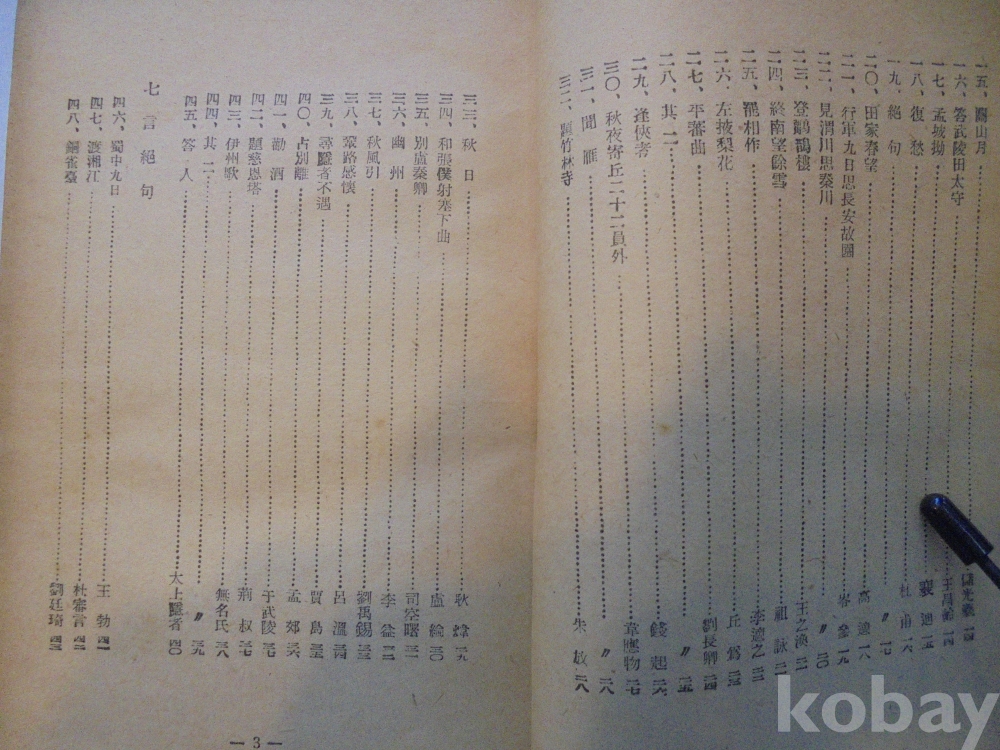 一五、關山月 儲光羲 一四
一六、答武陵田太守 王昌齡 一四
一七、孟城拗 裴迪 一五
一八、復愁 杜甫 一六
一九、絕句 〃 一七
二〇、田家春望 高適 一八
二一、行軍九日思長安故園 岑參 一九
二二、見渭川思秦川 〃 二〇
二三、登鸛鵲樓 王之渙 二一
二四、終南望餘雪 祖詠 二二
二五、罷相作 李適之 二三
二六、左掖梨花 丘爲 二三
二七、平蕃曲 劉長卿 二四
二八、其二 〃 二五
二九、逢俠者 錢起 二六
三〇、秋夜寄丘二十二員外 韋應物 二七
三一、聞雁 〃 二八
三二、題竹林寺 朱放 二八
三三、秋日 耿湋 二九
三四、和張僕射塞下曲 盧綸 三〇
三五、別盧秦卿 司空曙 三一
三六、幽州 李益 三二
三七、秋風引 劉禹錫 三三
三八、鞏路感懷 呂溫 三四
三九、尋隱者不遇 賈島 三五
四〇、古別離 孟郊 三六
四一、勸酒 于武陵 三七
四二、題慈恩塔 荊叔 三七
四三、伊州歌 無名氏 三八
四四、其二 〃 三九
四五、答人 太上隱者 四〇
七言絕句
四六、蜀中九日 王勃 四一
四七、渡湘江 杜審言 四二
四八、銅雀臺 劉廷琦 四三
— 3 —
kobay